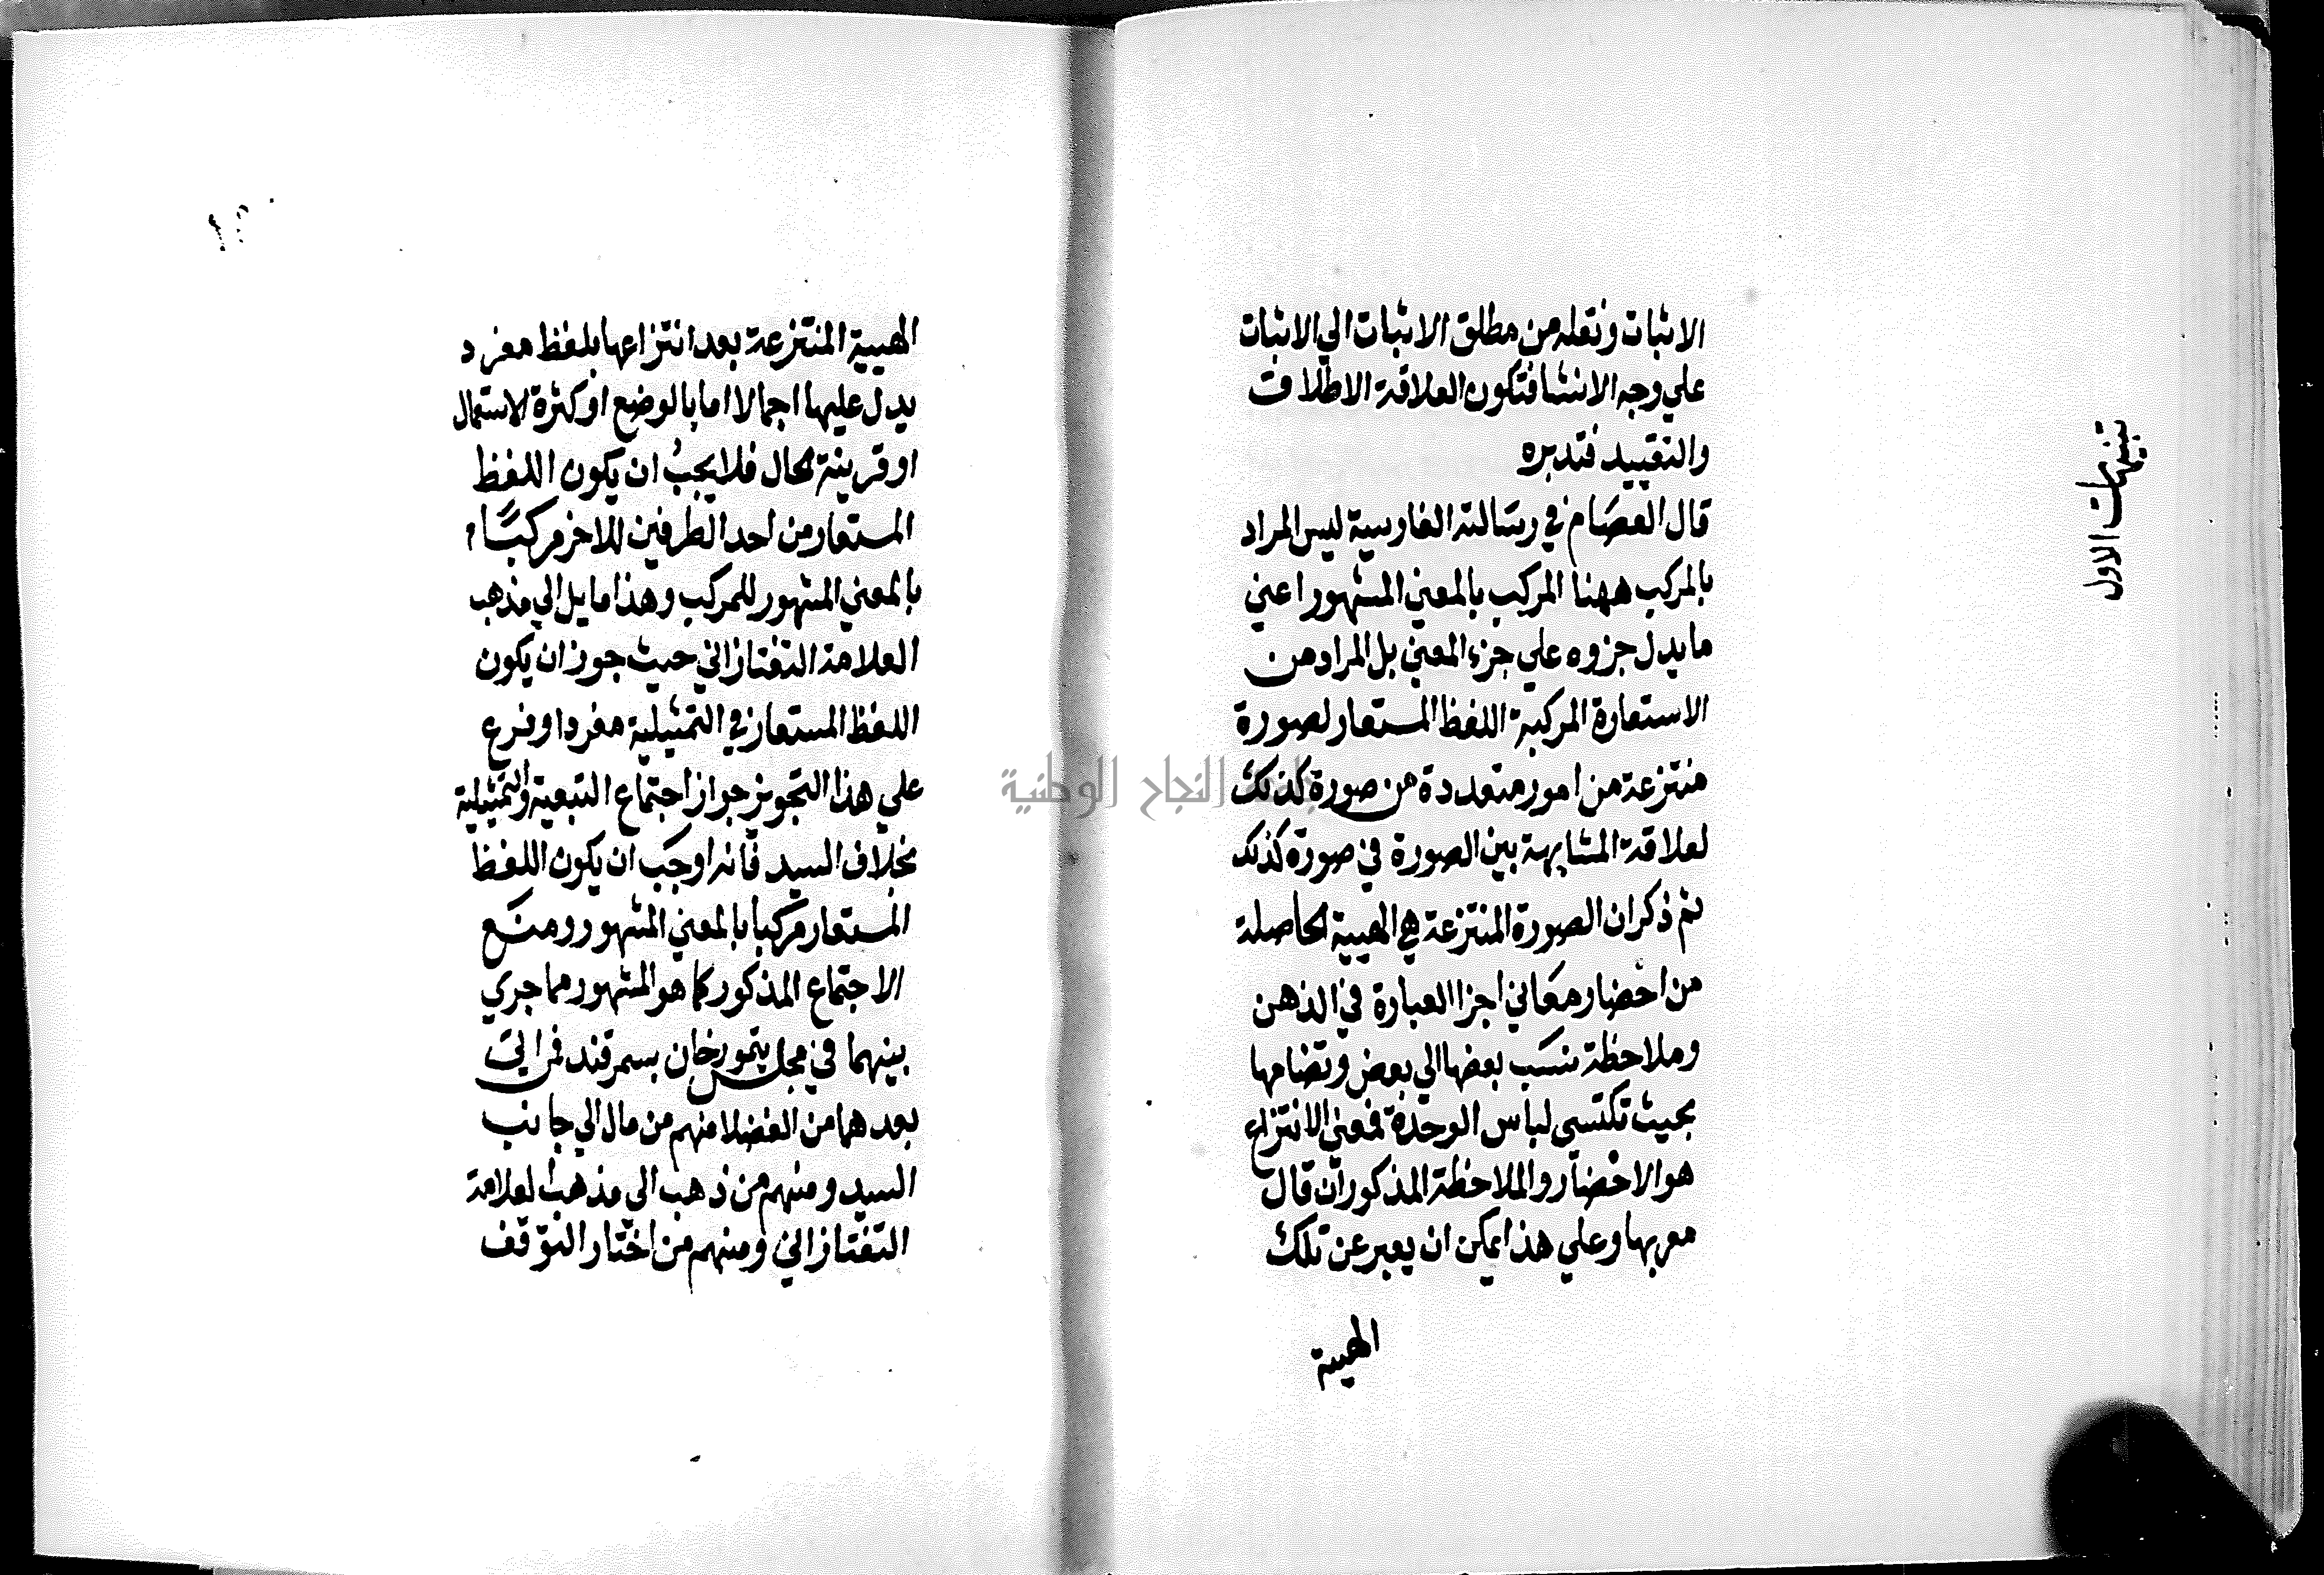 الاثبات ونقله من مطلق الاثبات الي الاثبات
علي وجه الانشا فتكون العلاقة الاطلاق
والتقييد فتدبره
تنبيهات الاول
قال العصام في رسالته الفارسية ليس المراد
بالمركب ههنا المركب بالمعني المشهور اعني
ما يدل جزوه علي جزء المعني بل المراد من
الاستعارة المركبة اللفظ المستعار لصورة
منتزعة من امور متعددة من صورة كذلك
لعلاقة المشابهة بين الصورة في صورة كذلك
ثم ذكر ان الصورة المنتزعة هي الهيية الحاصلة
من احضار معاني اجزا العبارة في الذهن
وملاحظة نسب بعضها الي بعض وتضامها
بحيث تكتسي لباس الوحدة فمعني الانتزاع
هو الاحضار والملاحظة المذكوران قال
معربها وعلي هذا يمكن ان يعبر عن تلك
الهيية
الهيية المنتزعة بعد انتزاعها بلفظ مفرد
يدل عليها اجمالا اما بالوضع او كثرة الاستعمال
او قرينة الحال فلا يجب ان يكون اللفظ
المستعار من احد الطرفين للاخر مركبا
بالمعني المشهور للمركب وهذا مايل الي مذهب
العلامة التفتازاني حيث جوز ان يكون
اللفظ المستعار في التمثيلية مفردا وفرع
علي هذا التجويز جواز اجتماع التبعية والتمثيلية
بخلاف السيد فانه اوجب ان يكون اللفظ
المستعار مركبا بالمعني المشهور ومنع
الاجتماع المذكور كما هو المشهور مما جري
بينهما في مجلس تيمورخان بسمرقند فمن اتي
بعدهما من الفضلا منهم من مال الي جانب
السيد ومنهم من ذهب الي مذهب العلامة
التفتازاني ومنهم من اختار التوقف
جامعة النجاح الوطنية